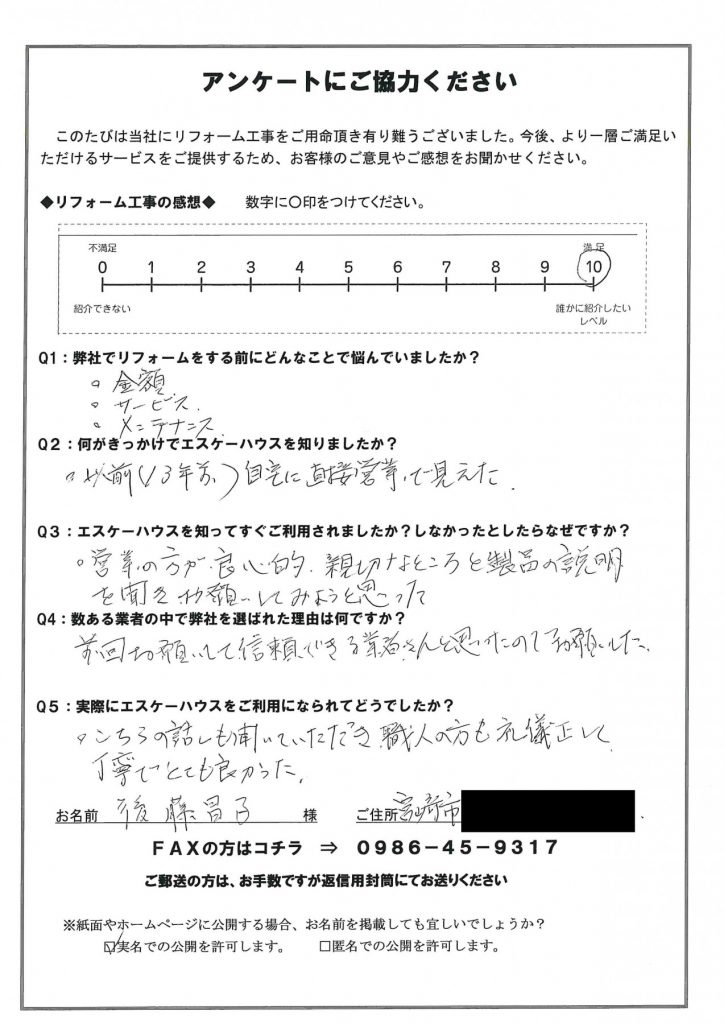 アンケートにご協力ください
このたびは当社にリフォーム工事をご用命頂き有り難うございました。今後、より一層ご満足い
ただけるサービスをご提供するため、お客様のご意見やご感想をお聞かせください。
◆リフォーム工事の感想◆　数字に〇印をつけてください。
不満足 満足
0 1 2 3 4 5 6 7 8 9 10
紹介できない 誰かに紹介したい
レベル
Q1：弊社でリフォームをする前にどんなことで悩んでいましたか？
。金額
。サービス
。メンテナンス
Q2：何がきっかけでエスケーハウスを知りましたか？
。以前(13年前)自宅に直接営業で見えた。
Q3：エスケーハウスを知ってすぐご利用されましたか？しなかったとしたらなぜですか？
。営業の方が良心的、親切なところと製品の説明
を聞きお願いしてみようと思った
Q4：数ある業者の中で弊社を選ばれた理由は何ですか？
前回お願いして信頼できる業者さんと思ったのでお願いした。
Q5：実際にエスケーハウスをご利用になられてどうでしたか？
。こちらの話しも聞いていただき、職人の方も礼儀正しく
丁寧でとても良かった。
お名前 後藤昌子 様 ご住所 宮崎市
FAXの方はコチラ ⇒ 0986-45-9317
ご郵送の方は、お手数ですが返信用封筒にてお送りください
※紙面やホームページに公開する場合、お名前を掲載しても宜しいでしょうか？
☑実名での公開を許可します。　□匿名での公開を許可します。